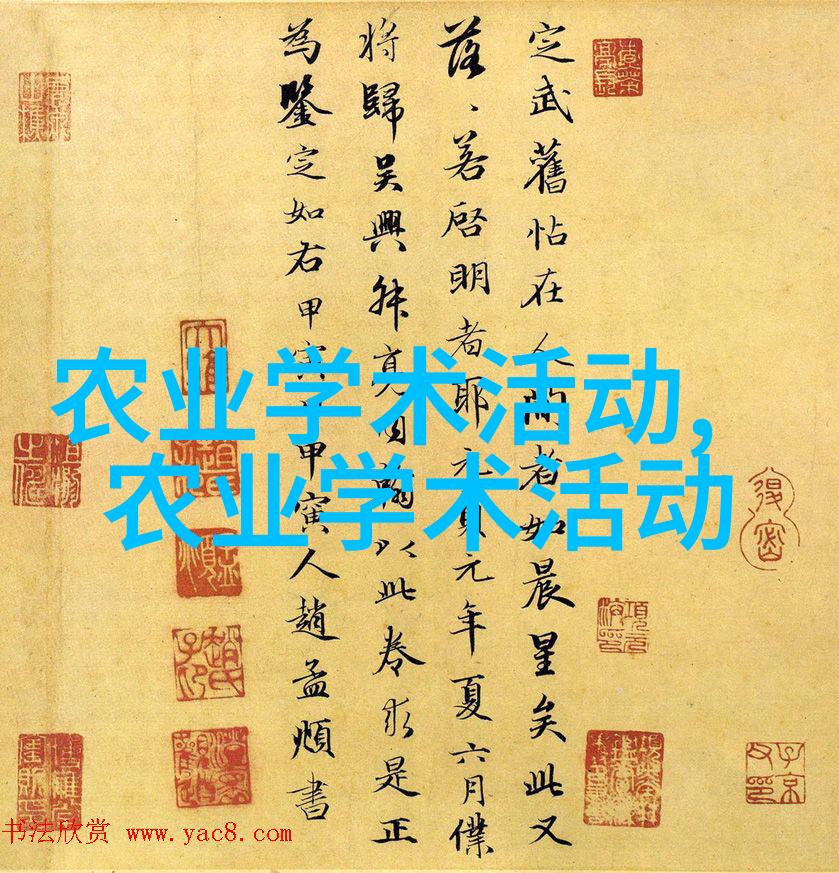 定武舊帖在人間者如晨星矣此又
落、若启明者耶元貞元年夏六月僕
将歸吴興舛亮自翰以此卷求是正
為鑒定如右甲寅甲寅人趙孟頫書
农业学术活动,
农业学术活动
书法欣赏 www.yac8.com